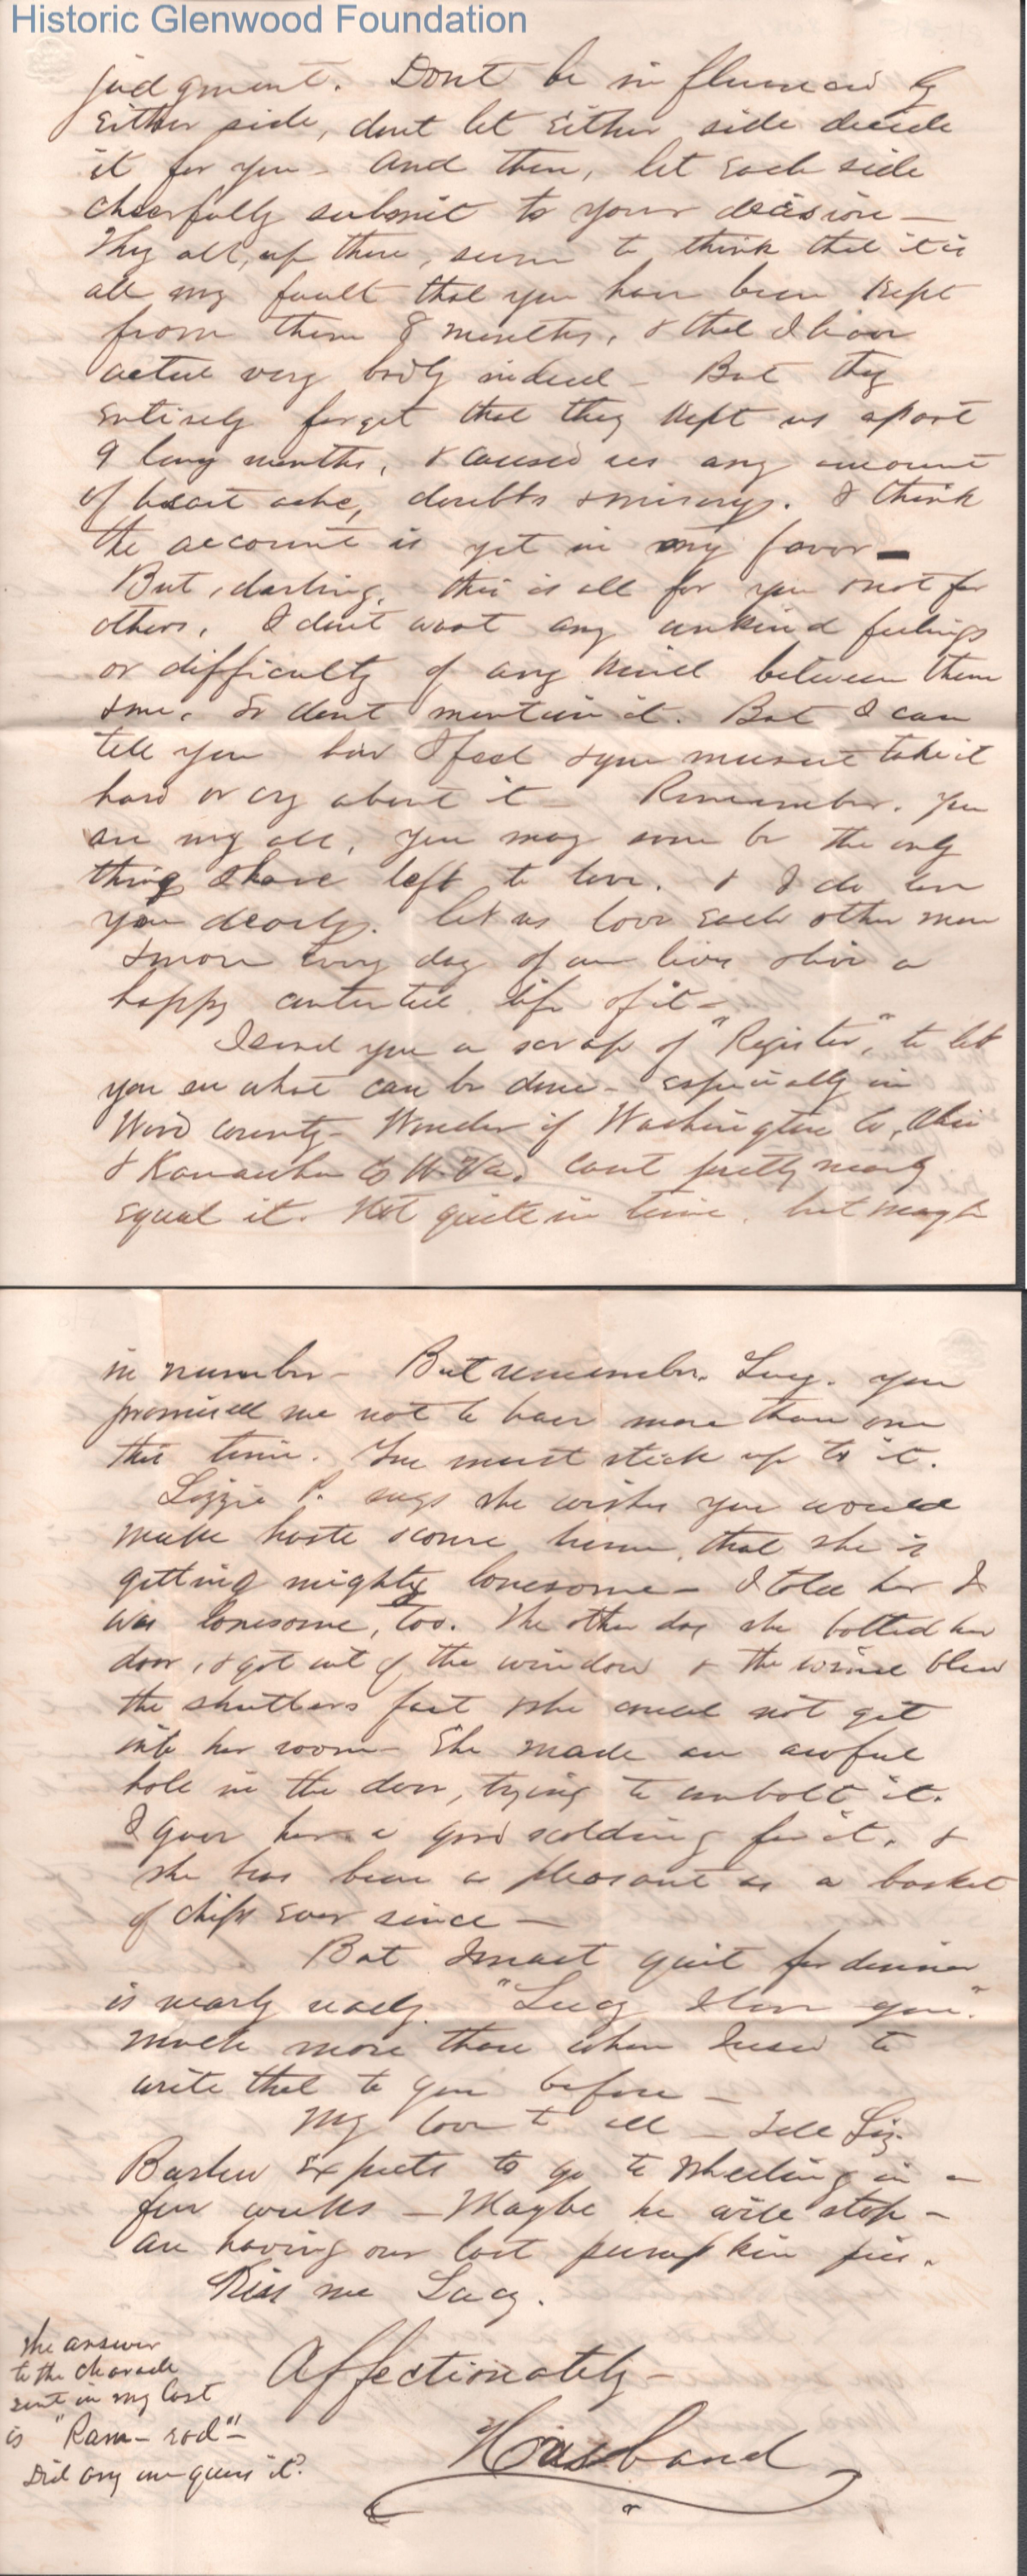 Historic Glenwood Foundation
judgment. Dont be influenced by
either side, dont let either side decide
it for you - And then, let each side
cheerfully submit to your decision -
They all, up there, seem to think that it is
all my fault that you have been kept
from them 8 months, & that I have
acted very badly indeed - But they
entirely forget that they kept us apart
9 long months, & caused us any amount
of heart ache, doubts & misery. I think
the account is yet in my favor -
But, darling, this is all for you & not for
others. I don't want any unkind feelings
or difficulty of any kind between them
& me. So dont mention it. But I can
tell you how I feel & you musnt take it
hard or cry about it - Remember, you
are my all, you may soon be the only
thing I have left to love. & I do love
you dearly. Let us love each other more
& more every day of our lives & live a
happy contented life of it -
I send you a scrap of "Register", to let
you see what can be done - especially in
Wood county - Wonder if Washington Co, Ohio
& Kanawha Co W. Va. cant pretty nearly
equal it. Not quite in time, but maybe
in number - But remember, Lucy, you
promised me not to have more than one
this time. You must stick up to it.
Lizzie P. says she wishes you would
make haste & come home, that she is
getting mighty lonesome - I told her I
was lonesome, too. The other day she bolted her
door, & got out of the window & the wind blew
the shutters fast & she could not get
into her room - She made an awful
hole in the door, trying to unbolt it.
I gave her a good scolding for it, &
she has been as pleasant as a basket
of chips ever since -
But I must quit for dinner
is nearly ready. "Lucy I love you".
much more than when I used to
write that to you before -
My love to all - Tell Liz
expects to go to Wheeling in a
few weeks - Maybe he will stop -
are having our last pumpkin pies.
Kiss me Lucy.
Affectionately -
Husband
The answer
to the charade
sent in my last
is "Ram - rod" -
Did any one guess it?